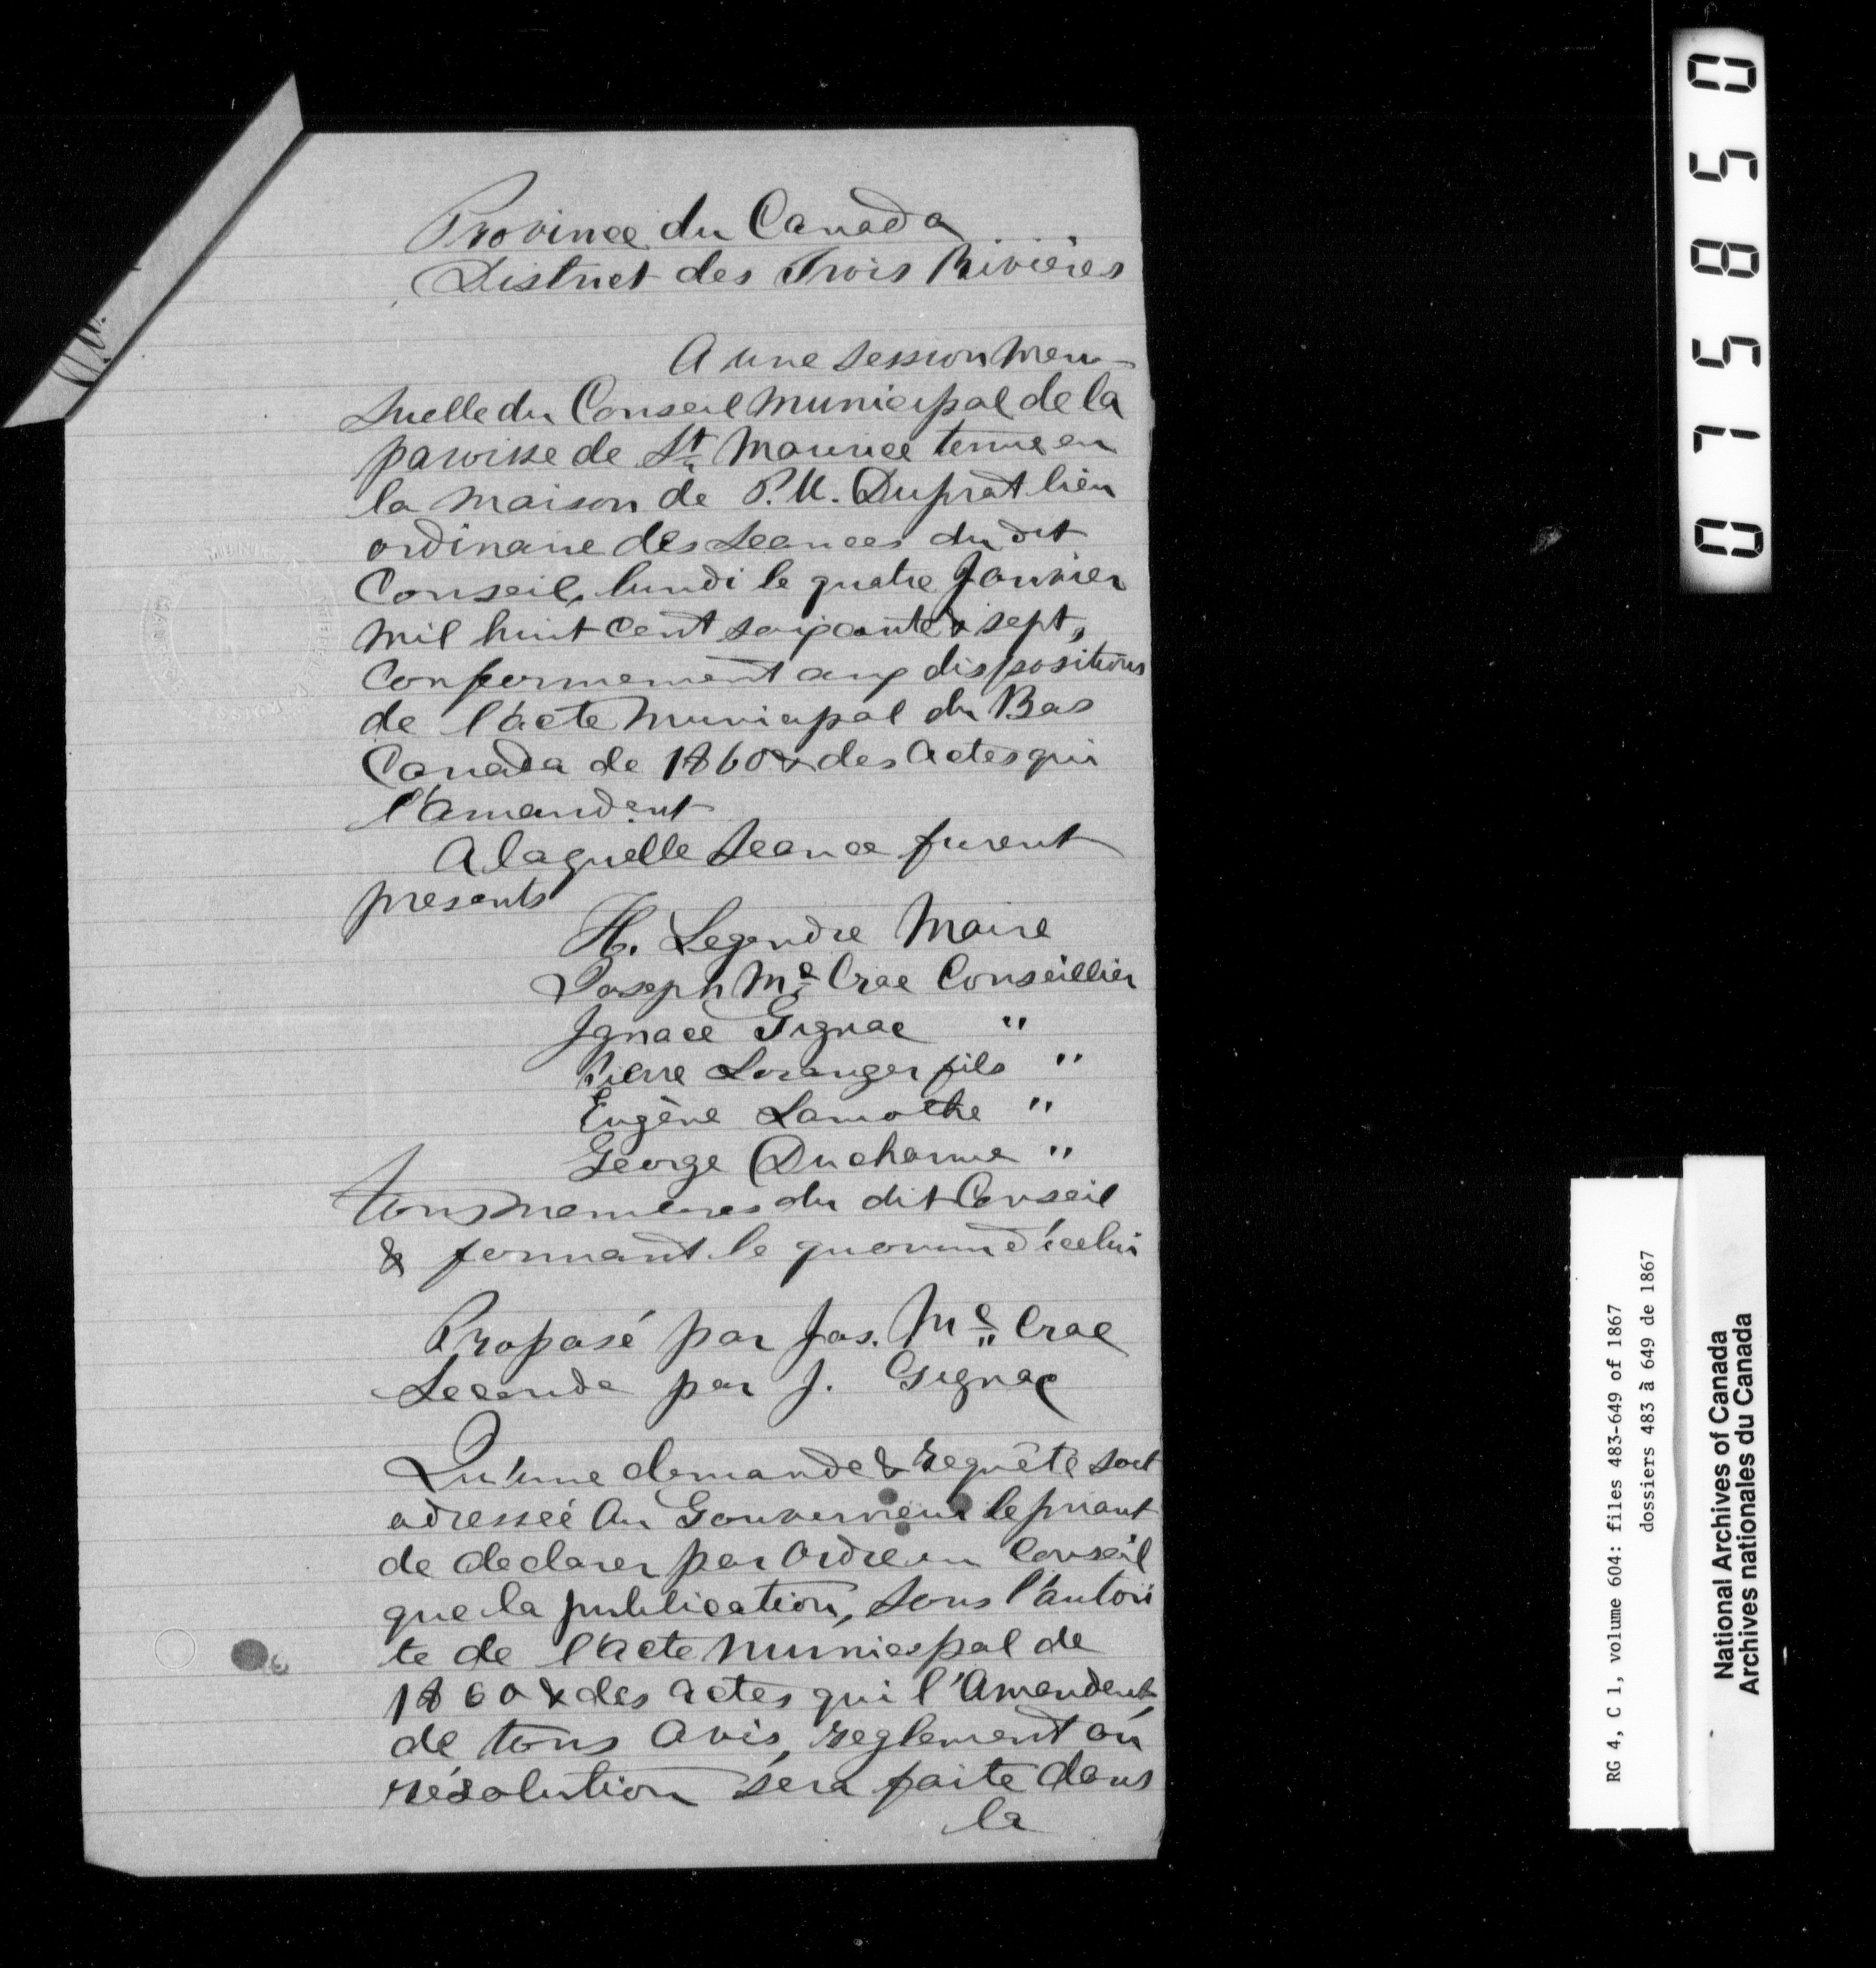 Province du Canada
District des Trois Rivières
A une session men-
suelle du Conseil Municipal de la
paroisse de St. Maurice tenue en
la maison de P. U. Duprat lieu
ordinaire des Seances du dit
Conseil, lundi le quatre Janvier
mil huit cent soixante & sept,
Conformement aux dispositions
de l'acte Municipal du Bas
Canada de 1860 & des Actes qui
l'amendent
A laquelle Seance furent
presents
H. Legendre Maire
Joseph Mc Crae Conseillier
Ignace Gignac "
Pierre Loranger fils "
Eugène Lamothe "
George Ducharme "
tous membres du dit Conseil
& formant le quorum d'icelui
Proposé par Jos. Mc Crae
Secondé par J. Gignac
Qu'une demande & requête soit
adresseé Au Gouverneur le priant
de declarer par Ordre en Conseil
que la publication, sous l'autori
te de l'acte Municipal de
1860 & des actes qui l'Amendent,
de tous Avis, reglement où
résolution sera faite dans
la
075850
RG 4, C 1, volume 604: files 483-649 of 1867
dossiers 483 à 649 de 1867
National Archives of Canada
Archives nationales du Canada